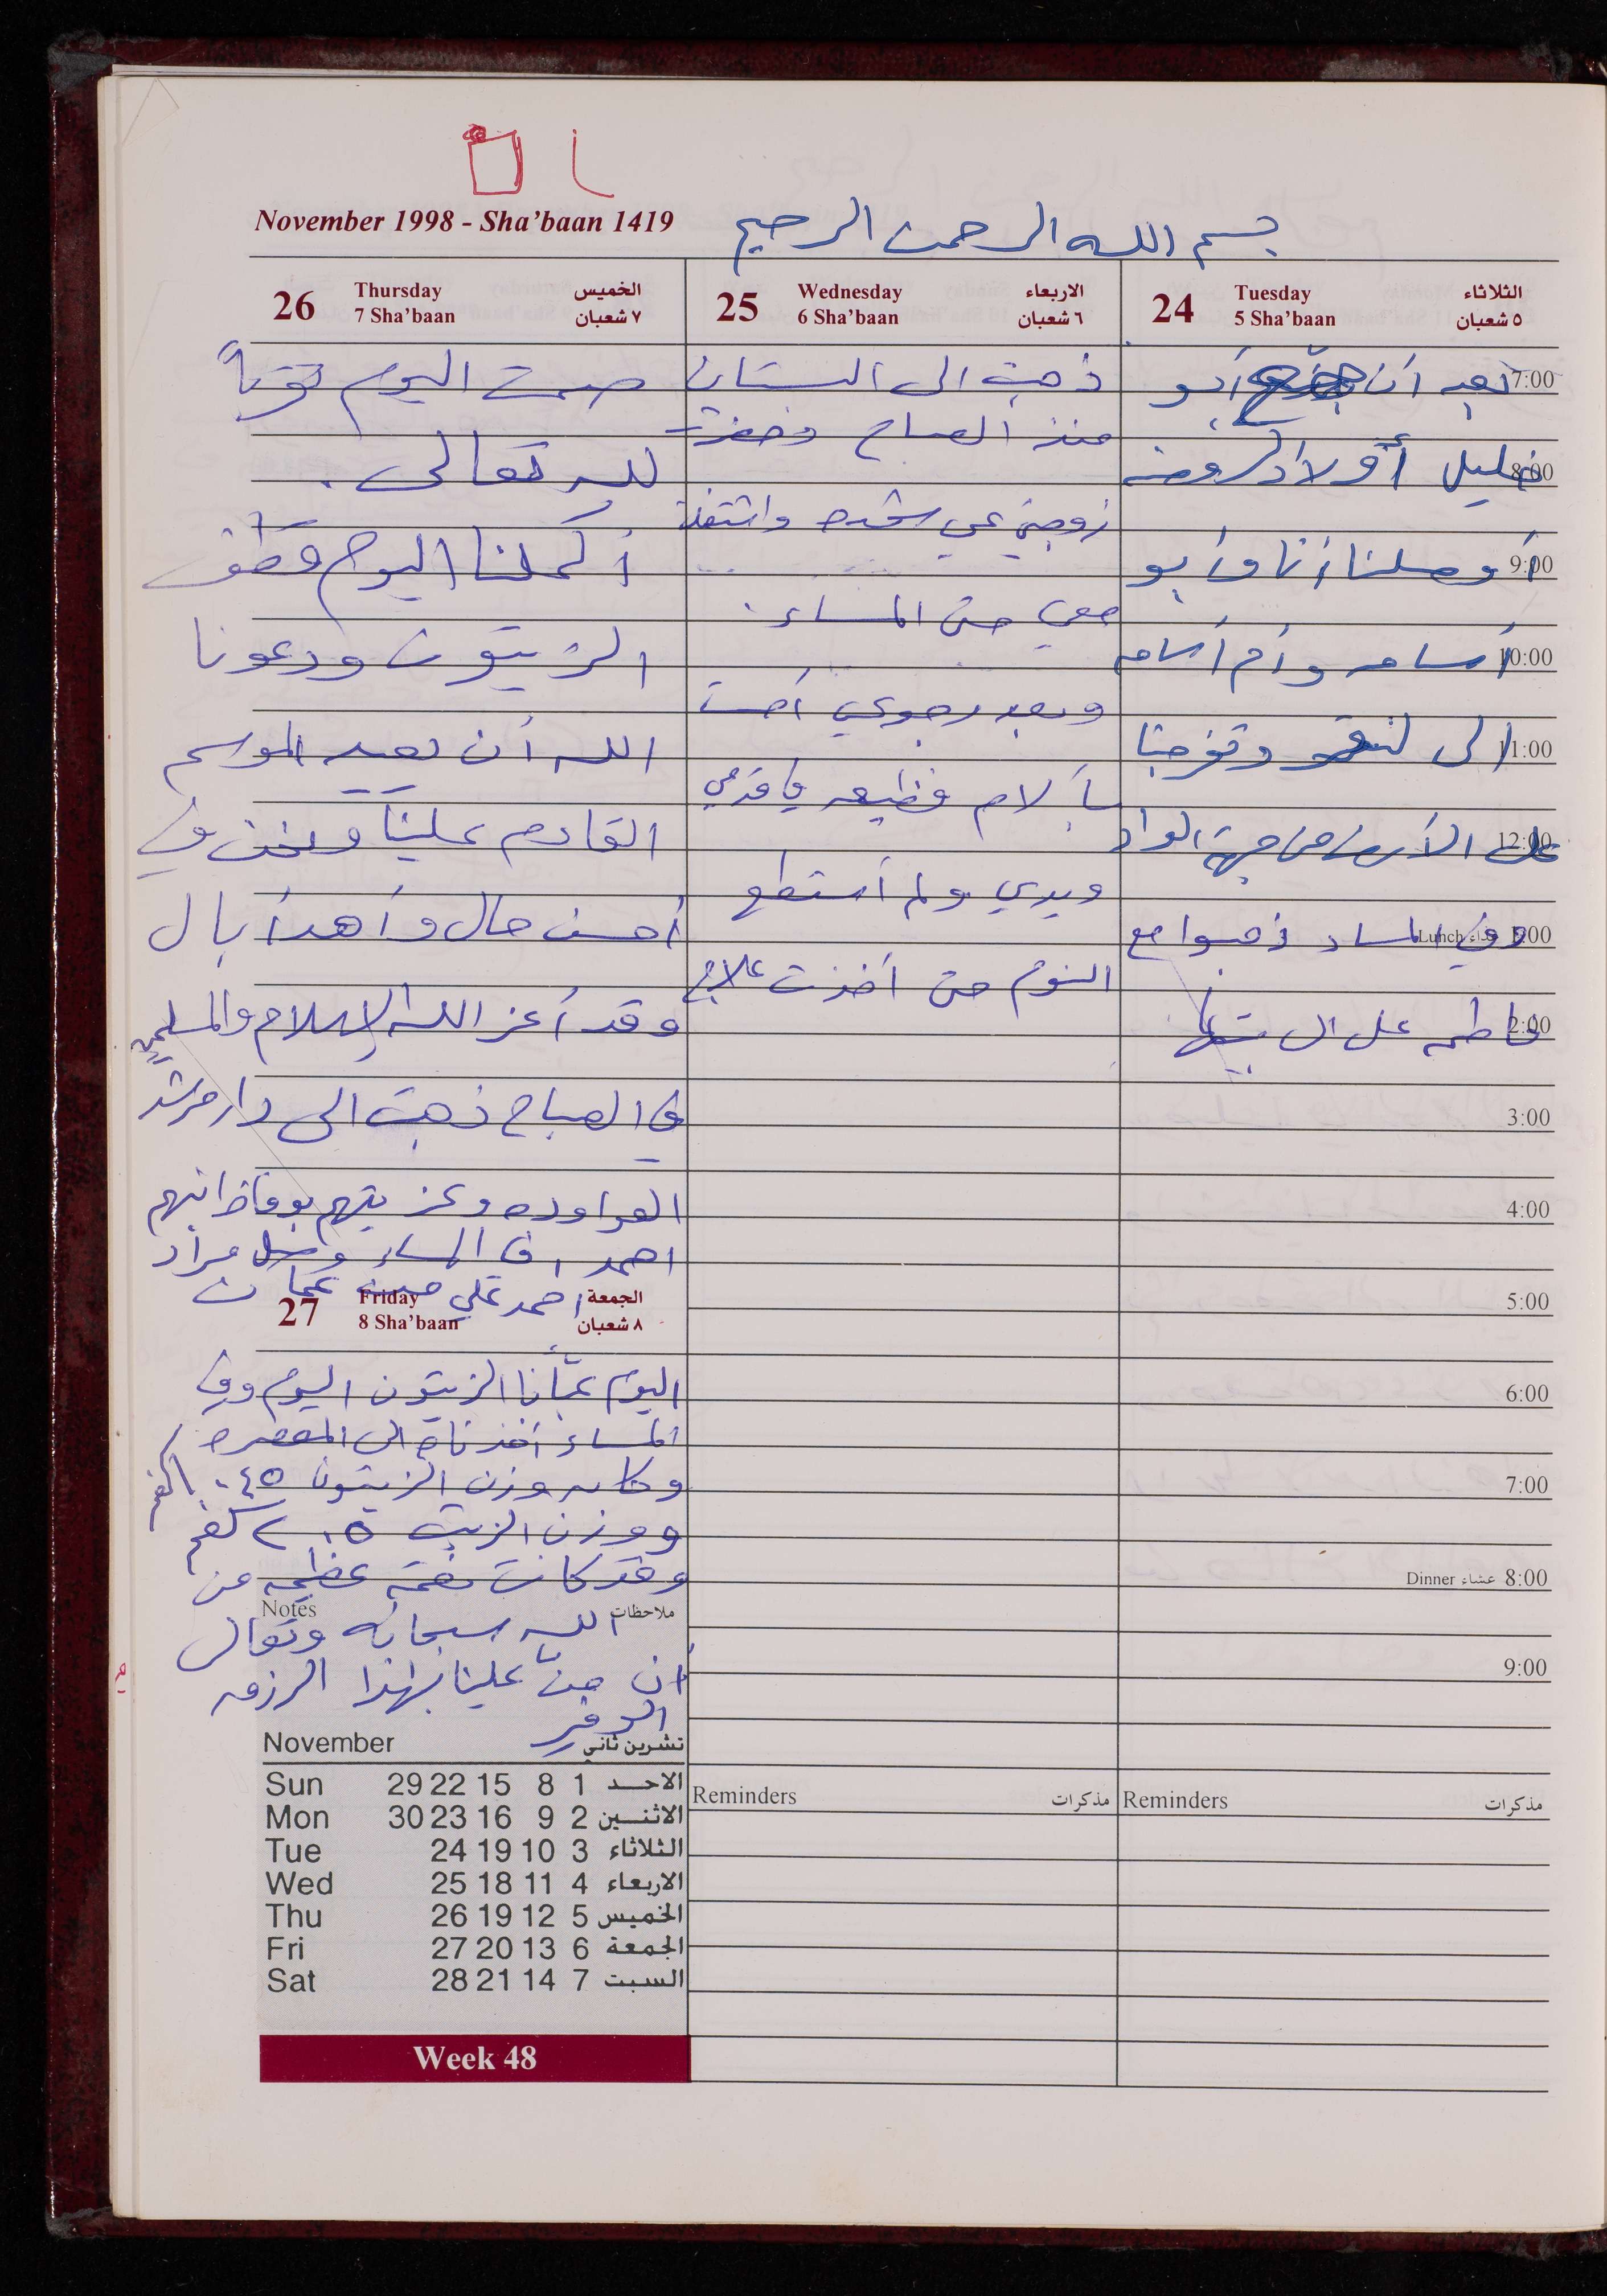 November 1998 - Sha'baan 1419
بسم الله الرحمن الرحيم
24 Tuesday الثلاثاء
5 Sha'baan ٥ شعبان
7:00
بعد أن أبو
8:00
خليل أولاد الروضه
9:00
أوصلنا أنا وأبو
10:00
أسامه وأم أسامه
11:00
الى وتفرجنا
12:00
على الأرض من جهة الواد
Lunch غداء 1:00
وفي المساء ذهبوا مع
2:00
فاطمه على ال
3:00
4:00
5:00
6:00
7:00
Dinner عشاء 8:00
9:00
Reminders مذكرات
25 Wednesday الاربعاء
6 Sha'baan ٦ شعبان
ذهبت الى البستان
منذ الصباح وحضرت
زوجتي عمي شحده واشتغلت
معي حتى المساء.
وبعد رجوعي أحسست
بآلام فظيعه في قدمي
ويدي ولم أستطع
النوم حتى أخذت علاج
Reminders مذكرات
26 Thursday الخميس
7 Sha'baan ٧ شعبان
صمت اليوم تقرباً
لله تعالى.
أكملنا اليوم قطف
الزيتون ودعونا
الله أن يعيد الموسم
القادم علينا ونحن في
أحسن حال وأهدأ بال
وقد أعز الله الإسلام والمسلمين
في الصباح ذهبت الى دار مرشد
العواوده وعزيتهم بوفاة ابنهم
احمد، في المساء وصل مراد
احمد علي من عمان
27 Friday الجمعة
8 Sha'baan ٨ شعبان
اليوم عبّأنا الزيتون اليوم وفي
المساء أخذناه الى المعصره
وكان وزن الزيتون ١٠٤٥ كغم
ووزن الزيت ٢٠٥ كغم
وقد كانت نعمة عظيمه من
Notes ملاحظات
الله سبحانه وتعالى
أن منّ علينا بهذا الرزق
الوفير
November تشرين ثاني
Sun 29 22 15 8 1 الاحد
Mon 30 23 16 9 2 الاثنين
Tue 24 19 10 3 الثلاثاء
Wed 25 18 11 4 الاربعاء
Thu 26 19 12 5 الخميس
Fri 27 20 13 6 الجمعة
Sat 28 21 14 7 السبت
Week 48